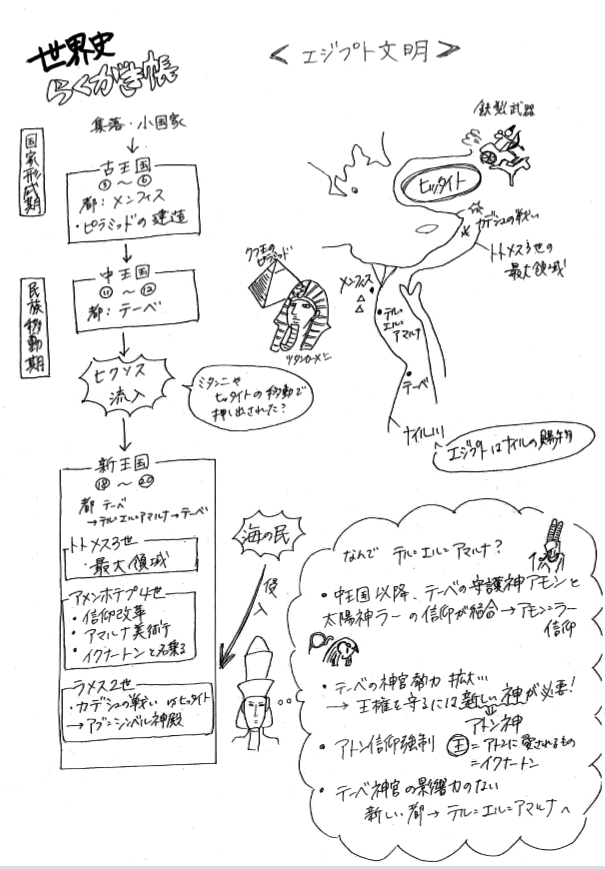 世界史
らくがき帳
＜エジプト文明＞
集落・小国家
国家形成期
古王国
③～⑥
都：メンフィス
・ピラミッドの建造
民族移動期
中王国
⑪～⑫
都：テーベ
ヒクソス
流入
ミタンニや
ヒッタイトの移動で
押し出された？
新王国
⑱～⑳
都 テーベ
→テル＝エル＝アマルナ→テーベ
トトメス3世
・最大領域
アメンホテプ4世
・信仰改革
・アマルナ美術
・イクナートンと名乗る
ラメス2世
・カデシュの戦い はヒッタイト
→アブ＝シンベル神殿
海の民
侵入
鉄製武器
ヒッタイト
カデシュの戦い
トトメス3世の
最大領域！
クフ王の
ピラミッド
ツタンカーメン
メンフィス
テル＝
エル＝
アマルナ
テーベ
ナイル川
エジプトはナイルの賜物
なんで テル＝エル＝アマルナ？
・中王国以降、テーベの守護神アモンと
太陽神ラーの信仰が結合→アモン＝ラー
信仰
・テーベの神官勢力 拡大…
→王権を守るには新しい神が必要！
アトン神
・アトン信仰強制 王＝アトンに愛されるもの
＝イクナートン
・テーベ神官の影響力のない
新しい都→テル＝エル＝アマルナへ